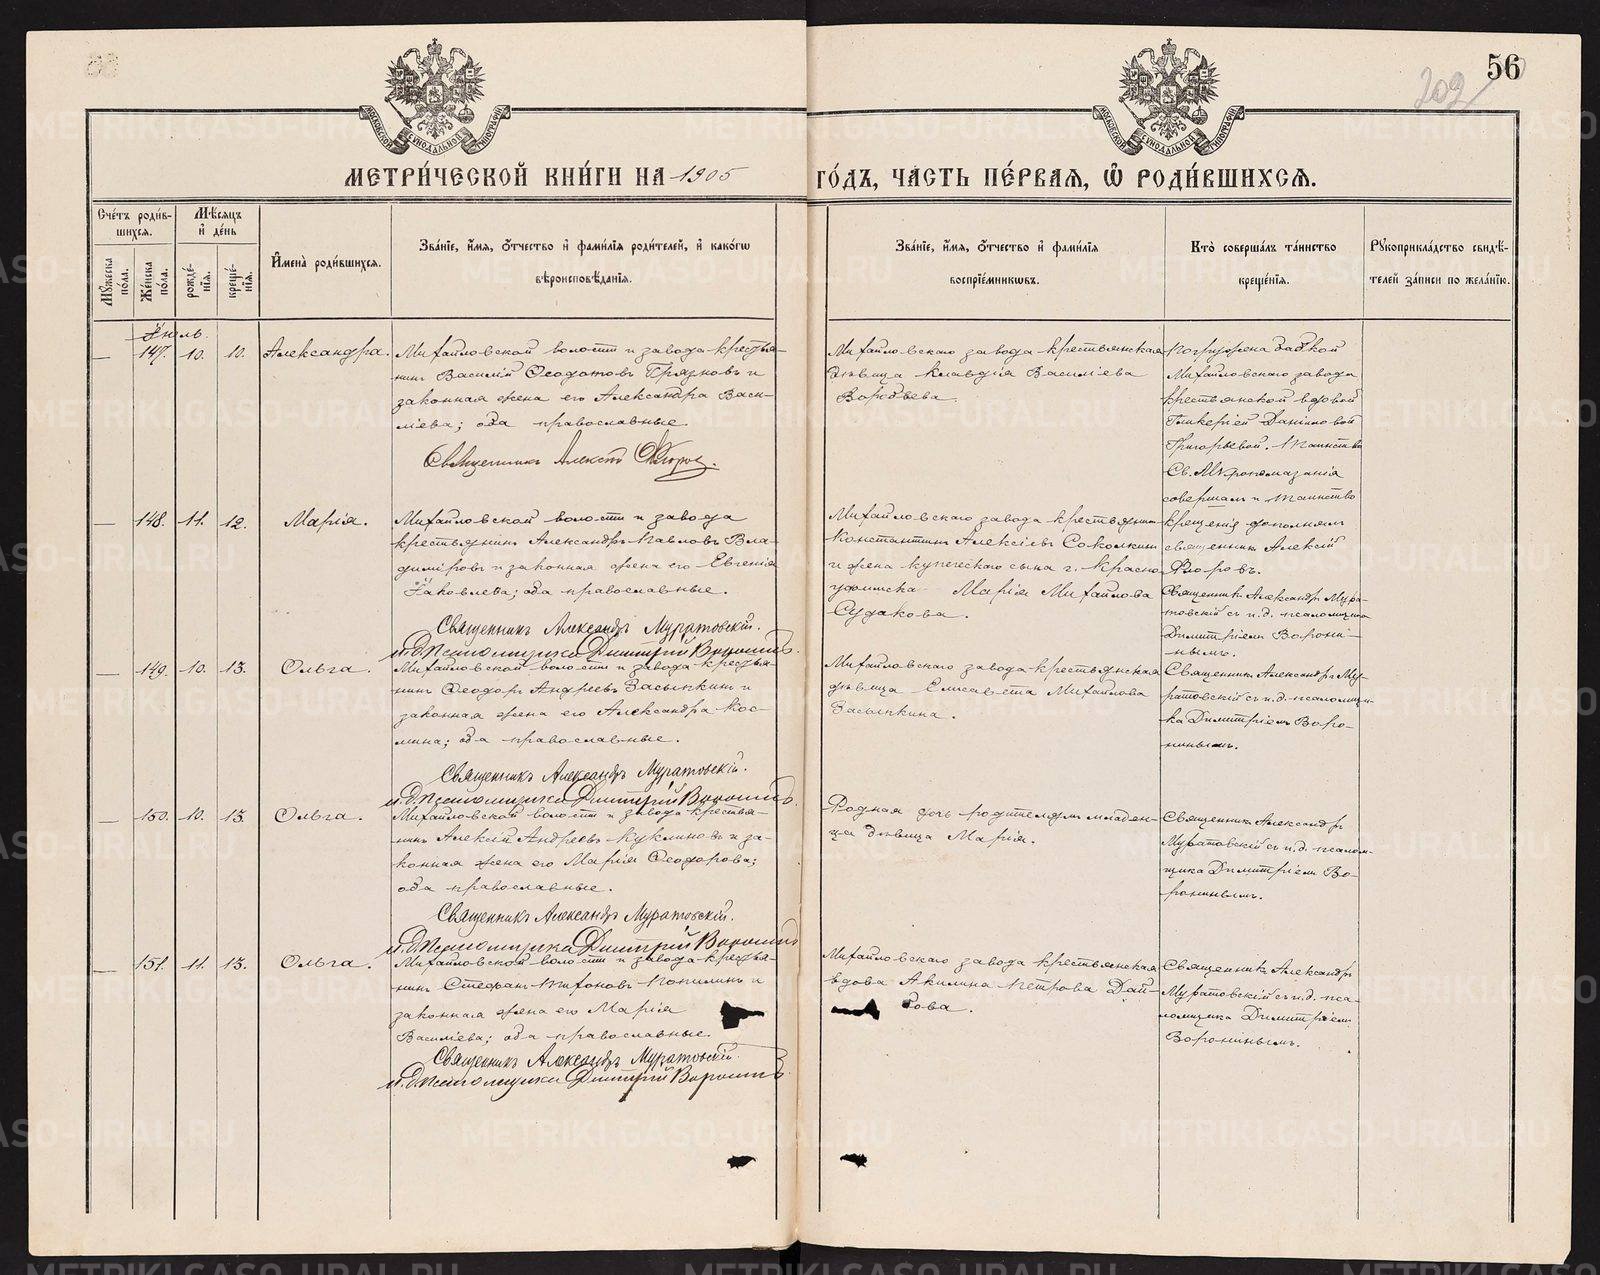 56
209
МОСКОВСКОЙ СУНОДАЛЬНОЙ ТИПОГРАФІИ
МОСКОВСКОЙ СУНОДАЛЬНОЙ ТИПОГРАФІИ
МЕТРИ́ЧЕСКОЙ КНИ́ГИ НА 1905 ГО́ДЪ, ЧА́СТЬ ПЕ́РВАЯ, Ѡ РОДИ́ВШИХСЯ.
Сче́тъ роди́в-
шихся.
Мꙋ́жеска
по́ла.
Же́нска
по́ла.
Мѣ́сяцъ
и҆ де́нь
рожде́-
нїя.
креще́-
нїя.
И҆мена̀ роди́вшихся.
Зва́нїе, и҆́мя, ѻ҆́тчество и҆ фами́лїя роди́телей, и҆ како́гѡ
вѣроисповѣ́данїя.
Зва́нїе, и҆́мя, ѻ҆́тчество и҆ фами́лїя
воспрїе́мникѡвъ.
Кто̀ соверша́лъ та́инство
креще́нїя.
Рꙋкоприкла́дство свидѣ́-
телей за́писи по жела́нїю.
Іюль
— 147. 10. 10. Александра.
Михайловской волости и завода крестья-
нинъ Василій Ѳеодотовъ Грязновъ и
законная жена его Александра Васи-
ліева; оба православные.
Священникъ Алексій Ѳлоровъ.
Михайловскаго завода крестьянская
дѣвица Клавдія Василіева
Воробьева.
Погружена бабкой
Михайловскаго завода
крестьянской вдовой
Гликеріей Даніиловой
Григорьевой. Таинство
Св. Мѵропомазанія
совершалъ и таинство
крещенія дополнялъ
священникъ Алексій
Ѳлоровъ.
— 148. 11. 12. Марія.
Михайловской волости и завода
крестьянинъ Александръ Павловъ Вла-
диміровъ и законная жена его Евгенія
Іаковлева; оба православные.
Священникъ Александръ Муратовскій.
и. д. Псаломщика Димитрій Воронинъ.
Михайловскаго завода крестьянинъ
Константинъ Алексіевъ Соколкинъ
и жена купеческаго сына г. Красно-
уфимска Марія Михайлова
Судакова.
Священникъ Александръ Мура-
товскій съ и. д. псаломщика
Димитріемъ Ворони-
нымъ.
— 149. 10. 13. Ольга.
Михайловской волости и завода крестья-
нинъ Ѳеодоръ Андреевъ Засыпкинъ и
законная жена его Александра Кос-
мина; оба православные.
Священникъ Александръ Муратовскій.
и. д. Псаломщика Димитрій Воронинъ.
Михайловскаго завода крестьянская
дѣвица Елисавета Михайлова
Засыпкина.
Священникъ Александръ Му-
ратовскій съ и. д. псаломщи-
ка Димитріемъ Воро-
нинымъ.
— 150. 10. 13. Ольга.
Михайловской волости и завода крестья-
нинъ Алексій Андреевъ Куклиновъ и за-
конная жена его Марія Ѳеодорова;
оба православные.
Священникъ Александръ Муратовскій.
и. д. Псаломщика Димитрій Воронинъ
Родная дочь родителямъ младен-
ца дѣвица Марія.
Священникъ Александръ
Муратовскій съ и. д. псалом-
щика Димитріемъ Во-
ронинымъ.
— 151. 11. 13. Ольга.
Михайловской волости и завода крестья-
нинъ Стефанъ Тихоновъ Копилинъ и
законная жена его Марія
Василіева; оба православные.
Священникъ Александръ Муратовскій.
и. д. Псаломщика Димитрій Воронинъ.
Михайловскаго завода крестьянская
вдова Акилина Петрова Дай-
бова.
Священникъ Александръ
Муратовскій съ и. д. пса-
ломщика Димитріемъ
Воронинымъ.
METRIKI.GASO-URAL.RU